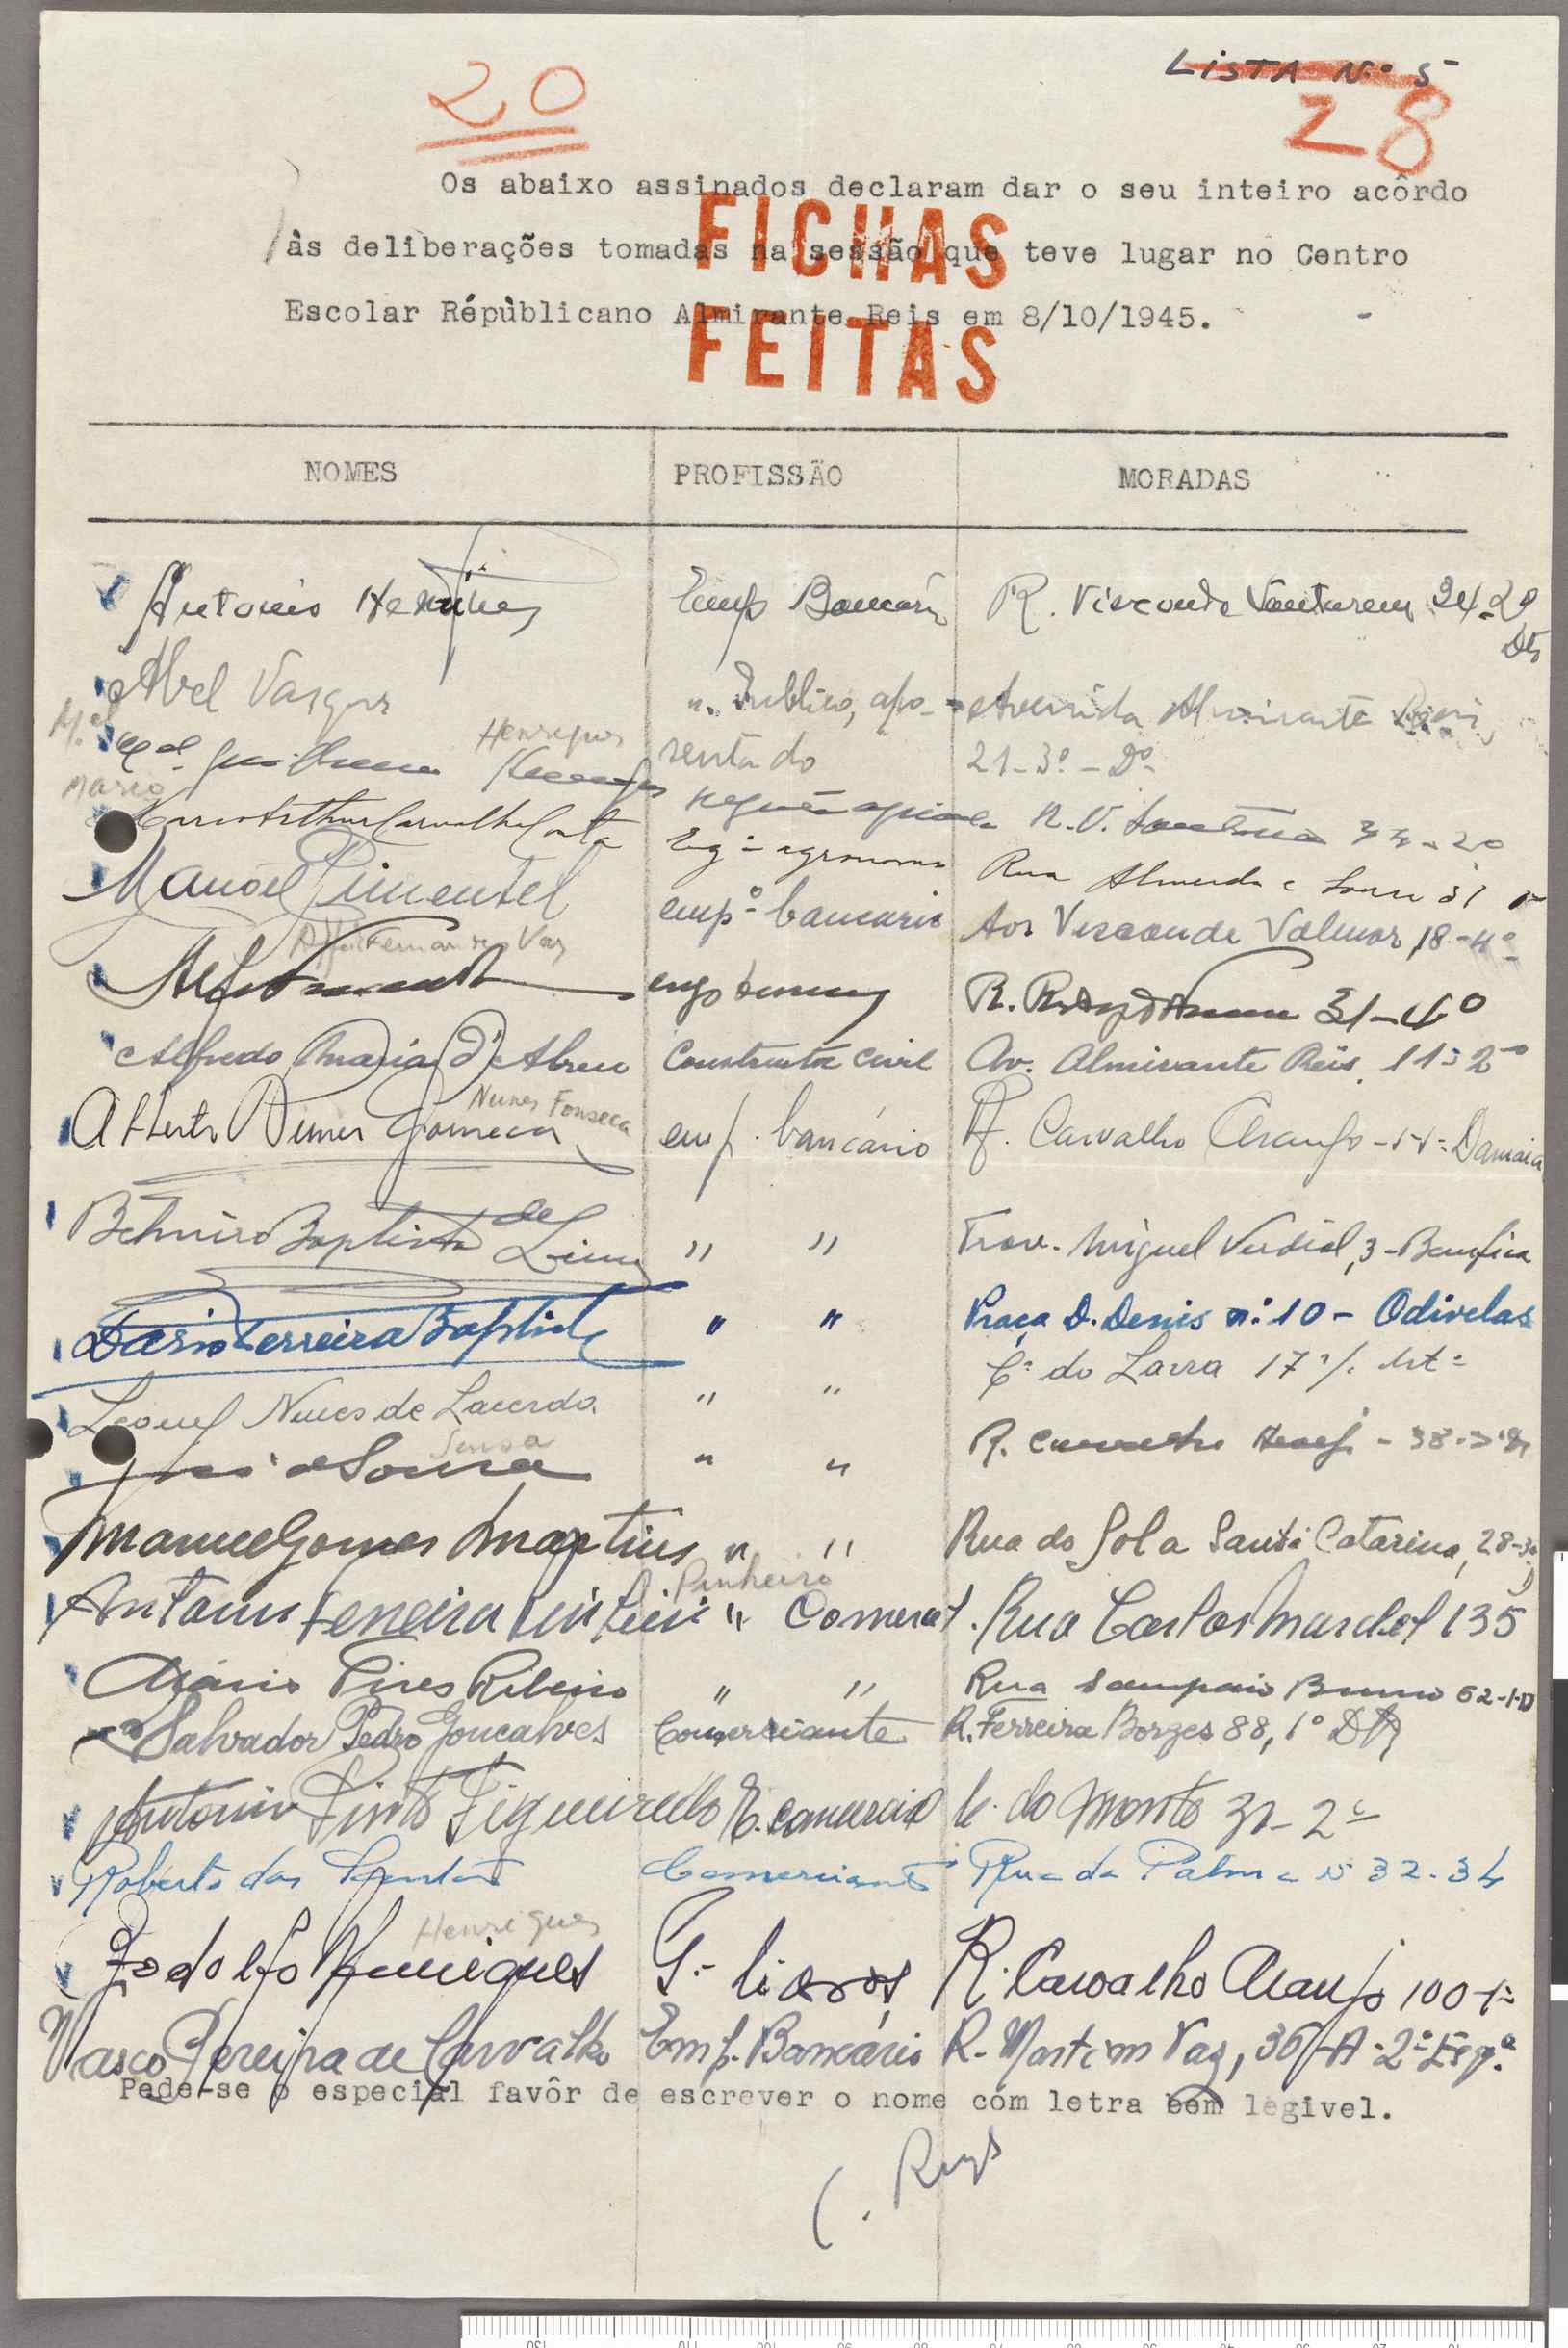 LISTA Nº 5
20
28
Os abaixo assinados declaram dar o seu inteiro acôrdo
às deliberações tomadas na sessão que teve lugar no Centro
Escolar Répùblicano Almirante Reis em 8/10/1945.
FICHAS
FEITAS
NOMES PROFISSÃO MORADAS
Antonio Henriques Emp Bancário R. Visconde Santarem 34-2º Dtº
Abel Vasques
Publico, apo- Avenida Almirante Reis,
sentado 21-3º-Dº
Mel Guilherme Henriques
Mario Arthur Carvalho Costa Engº agronomo Rua Almeida e Sousa 51
Manoel Pimentel empº bancario Av Visconde Valmor, 18-4º
Fernandes Vaz 31-4º
Alfredo Maria d'Abreu Construtor Civil Av. Almirante Reis, 11-2º
Alberto Nunes Fonseca Nunes Fonseca emp. bancário R. Carvalho Araujo - Damaia
Belmiro Baptista de Lima " " Trav. Miguel Verdial, 3 - Bemfica
Dario Ferreira Baptista " " Praça D. Denis nº 10 - Odivelas
Leonel Nunes de Lacerda " " Cç do Lavra 17
José de Sousa Sousa " " R. Carvalho Araujo - 38
Manuel Gomes Martins " " Rua do Sol a Santa Catarina, 28-3º
Antonio Ferreira Pinheiro Pinheiro " Comercial. Rua Carlos Mardel 135
Mário Pires Ribeiro " " Rua Sampaio Bruno 62-1-D
Salvador Pedro Gonçalves Comerciante R. Ferreira Borges 88, 1º Dtº
Antonio Pinto Figueiredo E. comercial do Monte 31-2º
Roberto dos Santos Comerciante Rua da Palma Nº 32-34
Rodolfo Henriques Henriques G. livros R. Carvalho Araujo 100-1º
Vasco Pereira de Carvalho Emp. Bancário R. Martim Vaz, 36-A-2º Esqº
Pede-se o especial favôr de escrever o nome cóm letra bem legivel.